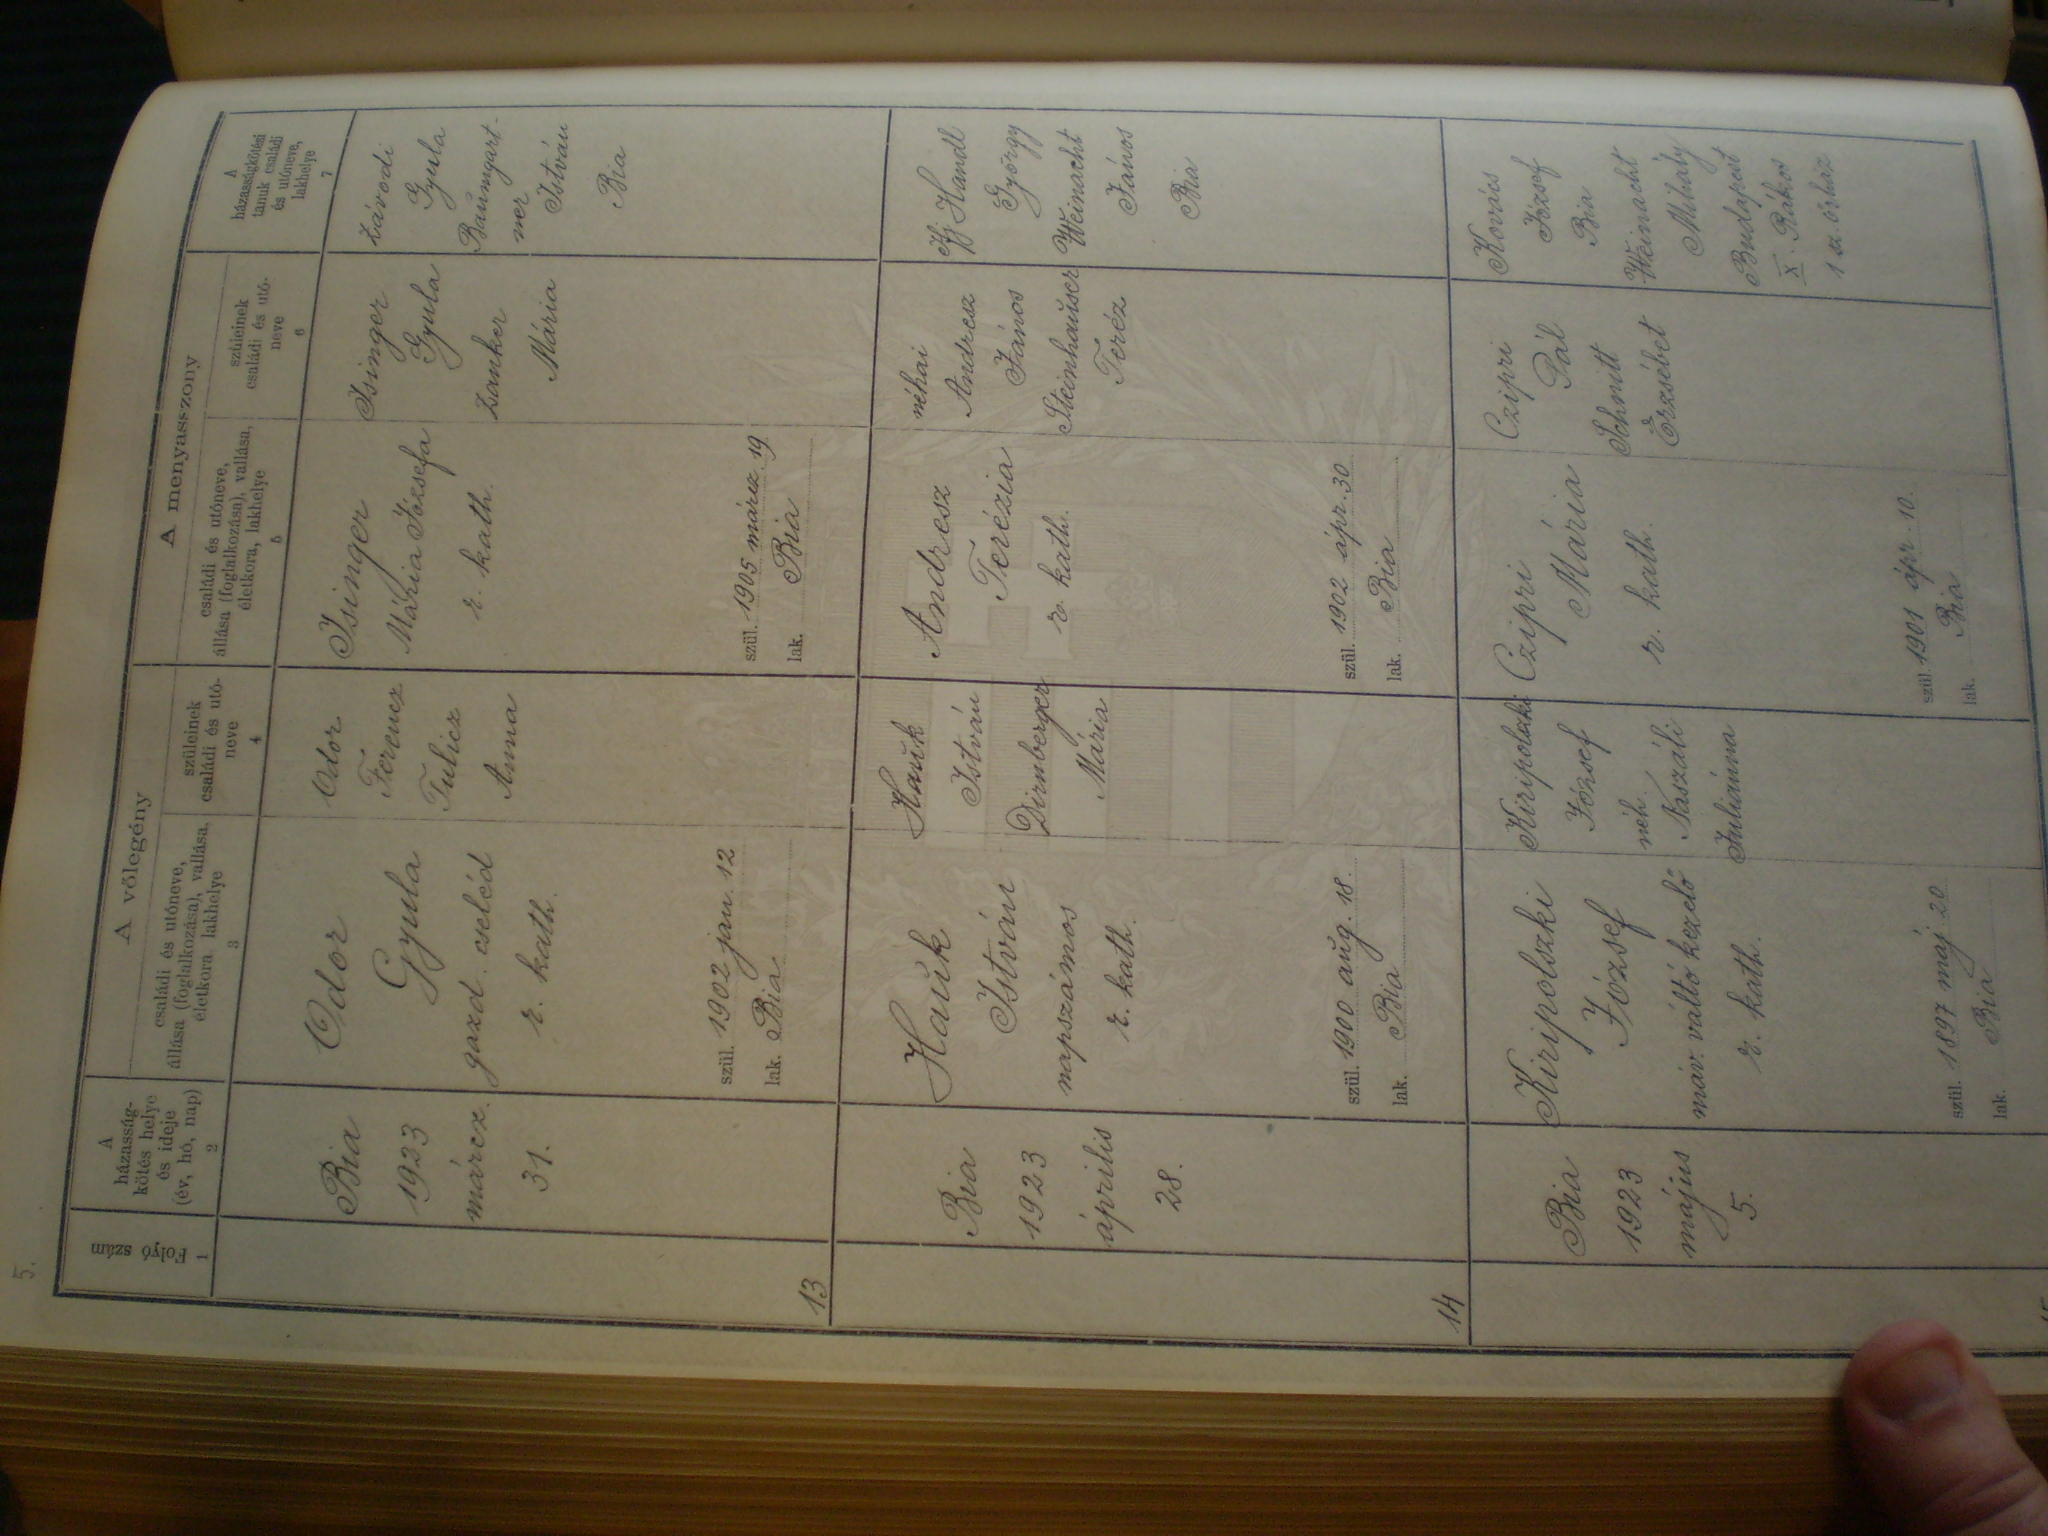 5.
Folyó szám
1
A
házasság-
kötés helye
és ideje
(év, hó, nap)
2
A vőlegény
családi és utóneve,
állása (foglalkozása), vallása,
életkora lakhelye
3
szüleinek
családi és utó-
neve
4
A menyasszony
családi és utóneve,
állása (foglalkozása), vallása,
életkora, lakhelye
5
szüleinek
családi és utó-
neve
6
A
házasságkötési
tanuk családi
és utóneve,
lakhelye
7
13
Bia
1923
márcz.
31.
Odor
Gyula
gazd. cseléd
r. kath.
szül. 1902 jan. 12
lak. Bia
Odor
Ferencz
Tulicz
Anna
Isinger
Mária Józsefa
r. kath.
szül. 1905 márcz. 19
lak. Bia
Isinger
Gyula
Zanker
Mária
Závodi
Gyula
Baumgart-
ner
István
Bia
14
Bia
1923
április
28.
Hauk
István
napszámos
r. kath.
szül. 1900 aug. 18.
lak. Bia
Hauk
István
Dirnberger
Mária
Andresz
Terézia
r. kath.
szül. 1902 ápr. 30
lak. Bia
néhai
Andresz
János
Steinhauser
Teréz
ifj Handl
György
Weinacht
János
Bia
Bia
1923
május
5.
Kiripolszki
József
máv. váltó kezelő
r. kath.
szül. 1897 máj 20
lak. Bia
Kiripolszki
József
néh.
Naszáli
Juliánna
Czipri
Mária
r. kath.
szül. 1901 ápr. 10.
lak. Bia
Czipri
Pál
Schmitt
Erzsébet
Kovács
József
Bia
Weinacht
Mihály
Budapest
X. Rákos
1 sz. őrház